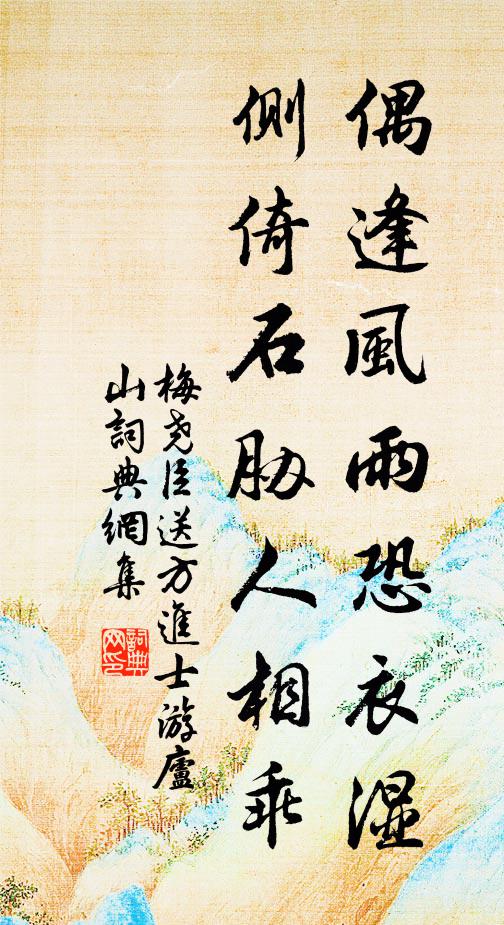 偶逢風雨恐衣濕
側倚石胁人相乖
梅尧臣送方進士游廬
山詞典網集
詞典
网印